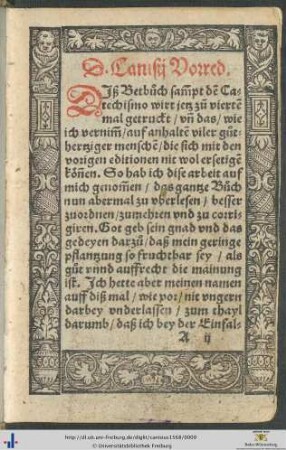 D. Canisij Vorred.
DIß Betbůch sam̃pt dē Ca-
techismo wirt jetz zů viertē
mal getruckt / vn̄ das / wie
ich vernim̃ / auf anhaltē viler gůt-
hertziger menschē / die sich mit den
vorigen editionen nit wol ersetigē
kõnen. So hab ich dise arbeit auf
mich genom̃en / das gantze Bůch
nun abermal zu vberlesen / besser
zuordnen / zumehren vnd zu corri-
giren. Got geb sein gnad vnd das
gedeyen darzů / daß mein geringe
pflantzung so fruchtbar sey / als
gůt vnnd auffrecht die mainung
ist. Ich hette aber meinen namen
auff diß mal / wie vor / nit vngern
darbey vnderlassen / zum thayl
darumb / daß ich bey der Einfal-
A ij
http://dl.ub.uni-freiburg.de/diglit/canisius1568/0009
© Universitätsbibliothek Freiburg